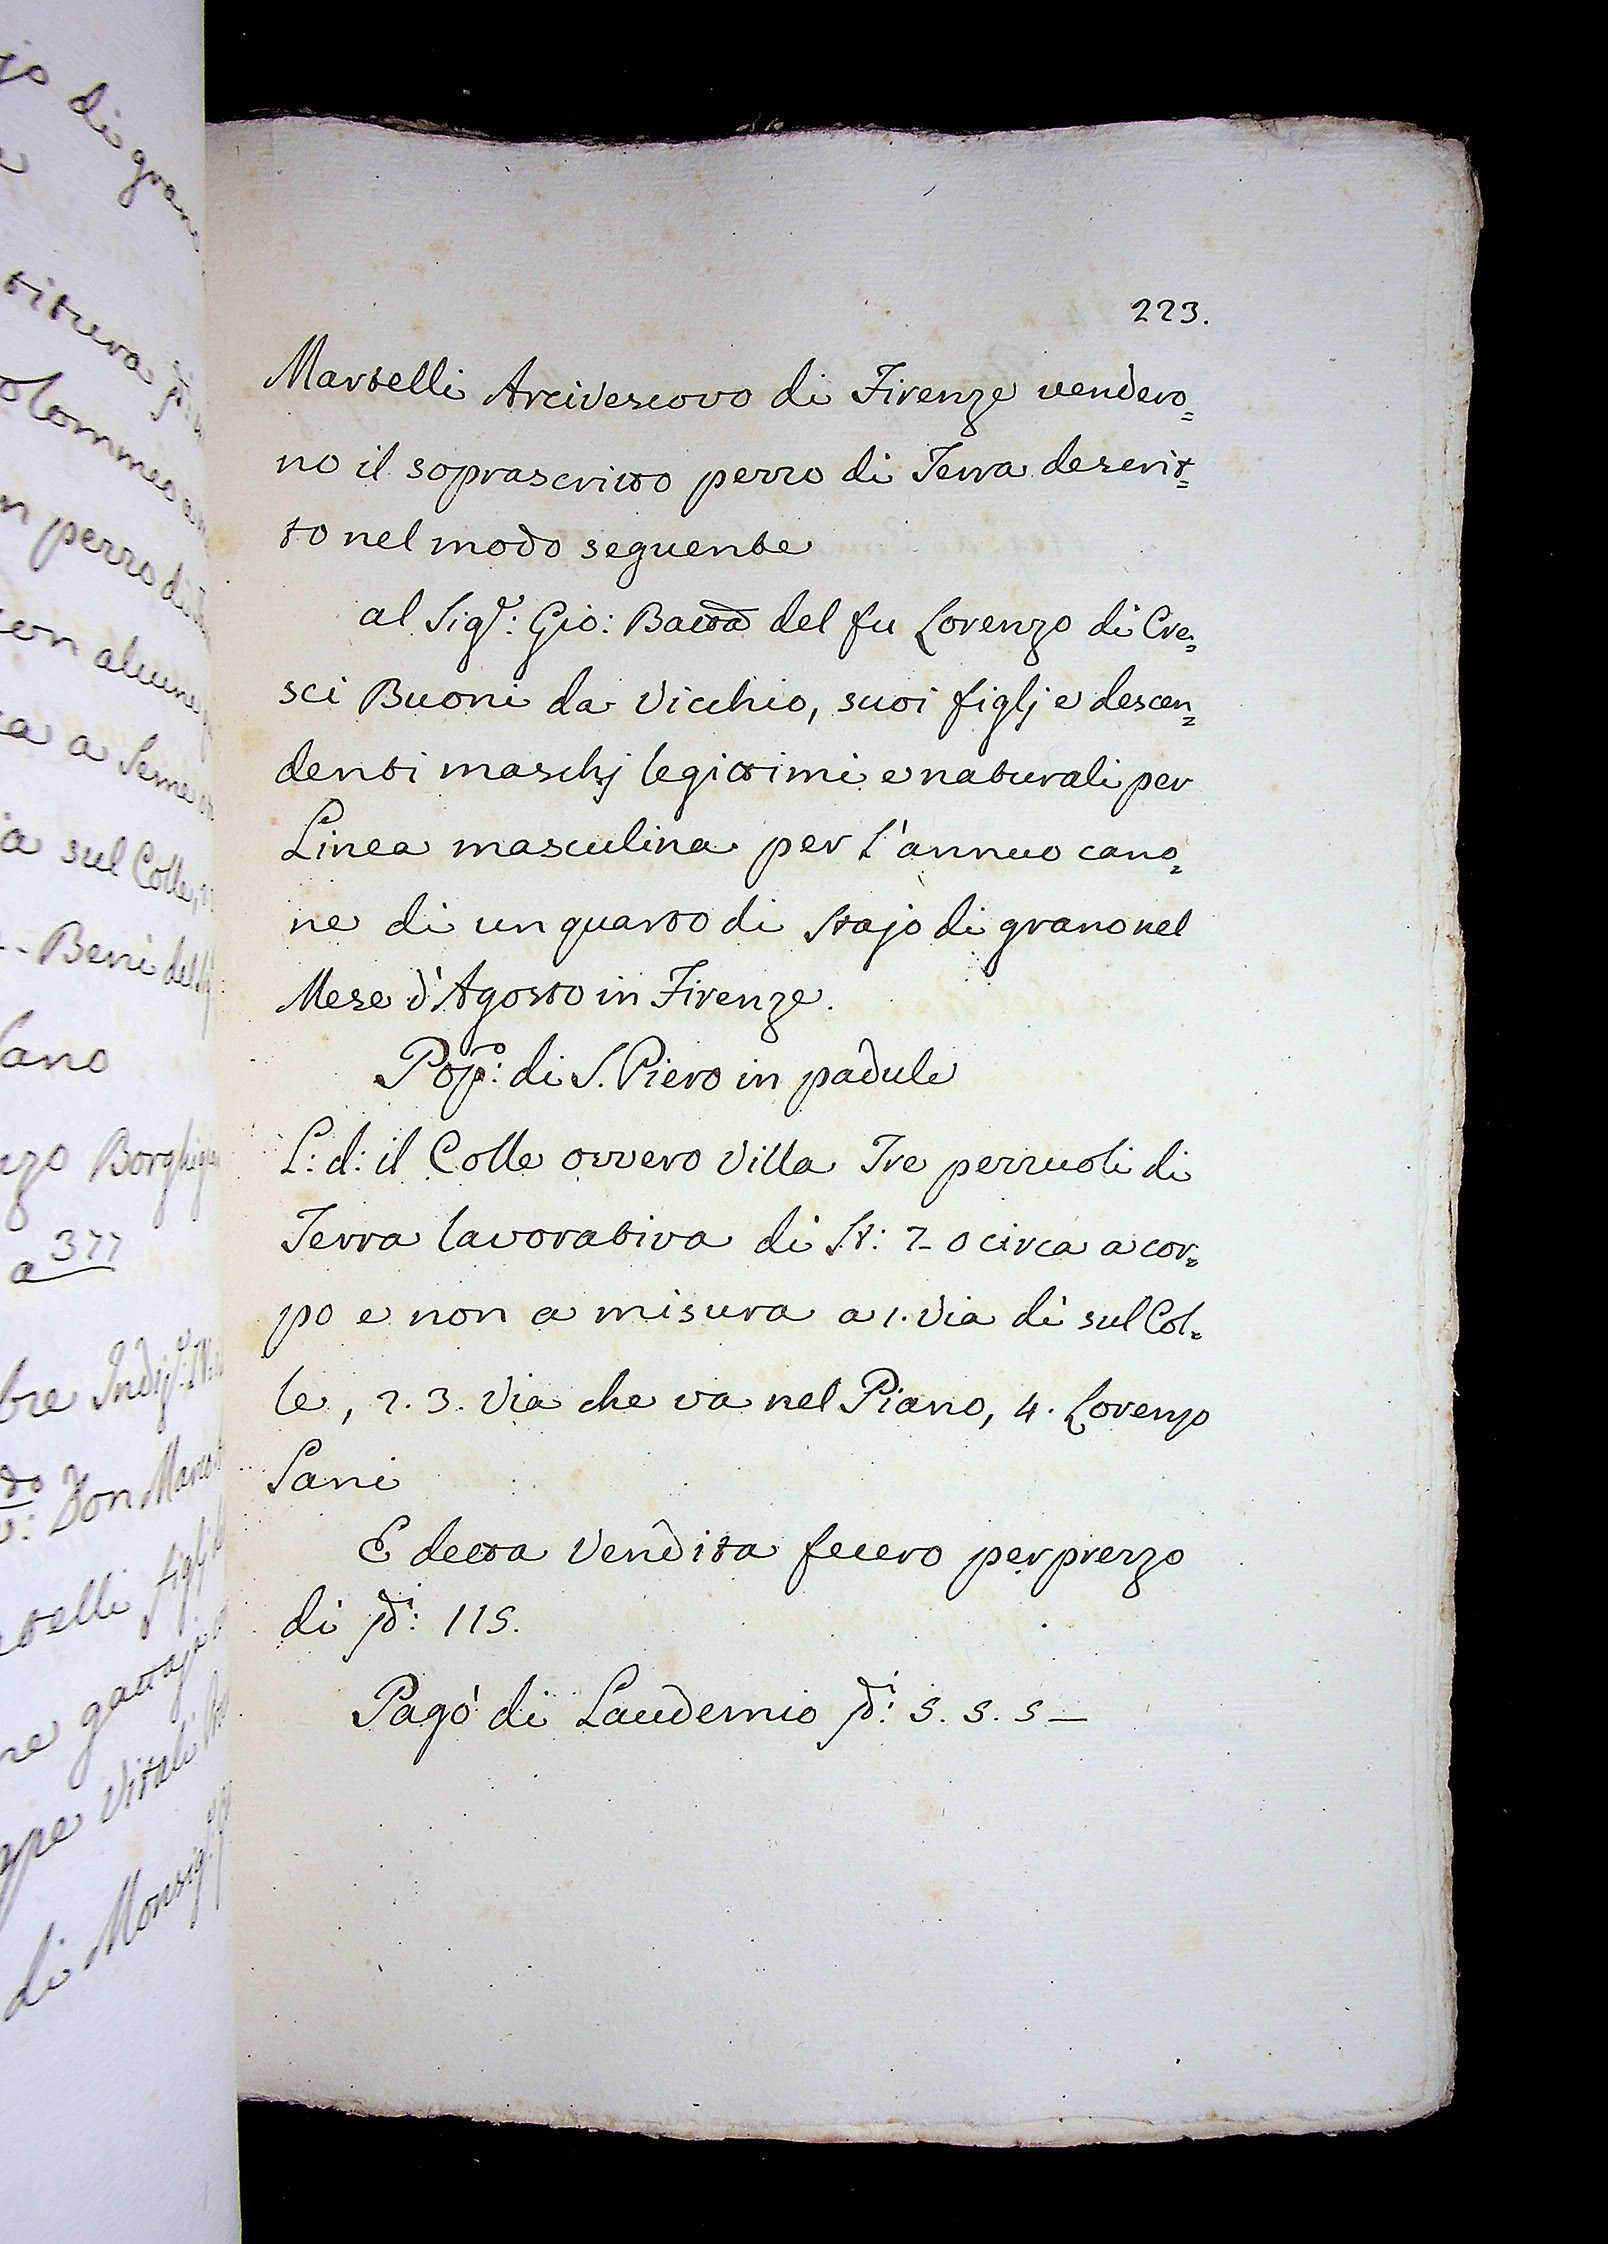 223.
Martelli Arcivescovo di Firenze vendero=
no il soprascritto pezzo di Terra descrit=
to nel modo seguente
al Sig.r: Gio: Batta del fu Lorenzo di Cre=
sci Buoni da Vicchio, suoi figlj e descen=
denti maschj legittimi e naturali per
Linea masculina per l'annuo cano=
ne di un quarto di Stajo di grano nel
Mese d'Agosto in Firenze.
Pop.o: di S. Piero in padule
L: d: il Colle ovvero Villa Tre pezzuoli di
Terra lavorativa di St: 2_ 0 circa a cor=
po e non a misura a 1. Via di sul Col=
le, 2. 3. Via che va nel Piano, 4. Lorenzo
Sani
E detta Vendita fecero per prezzo
di 115.
Pagò di Laudemio 5. 5. 5 _
jo di gran
titura
olommeo
n pezzo di
con alcune
ca a Seme
ia sul Colle,
Beni del
Cano
nzo Borghig
a 377
bre Indiz
do Don Marco
rtelli figlj
ne gattaja
ppe Vitali
di Monsig